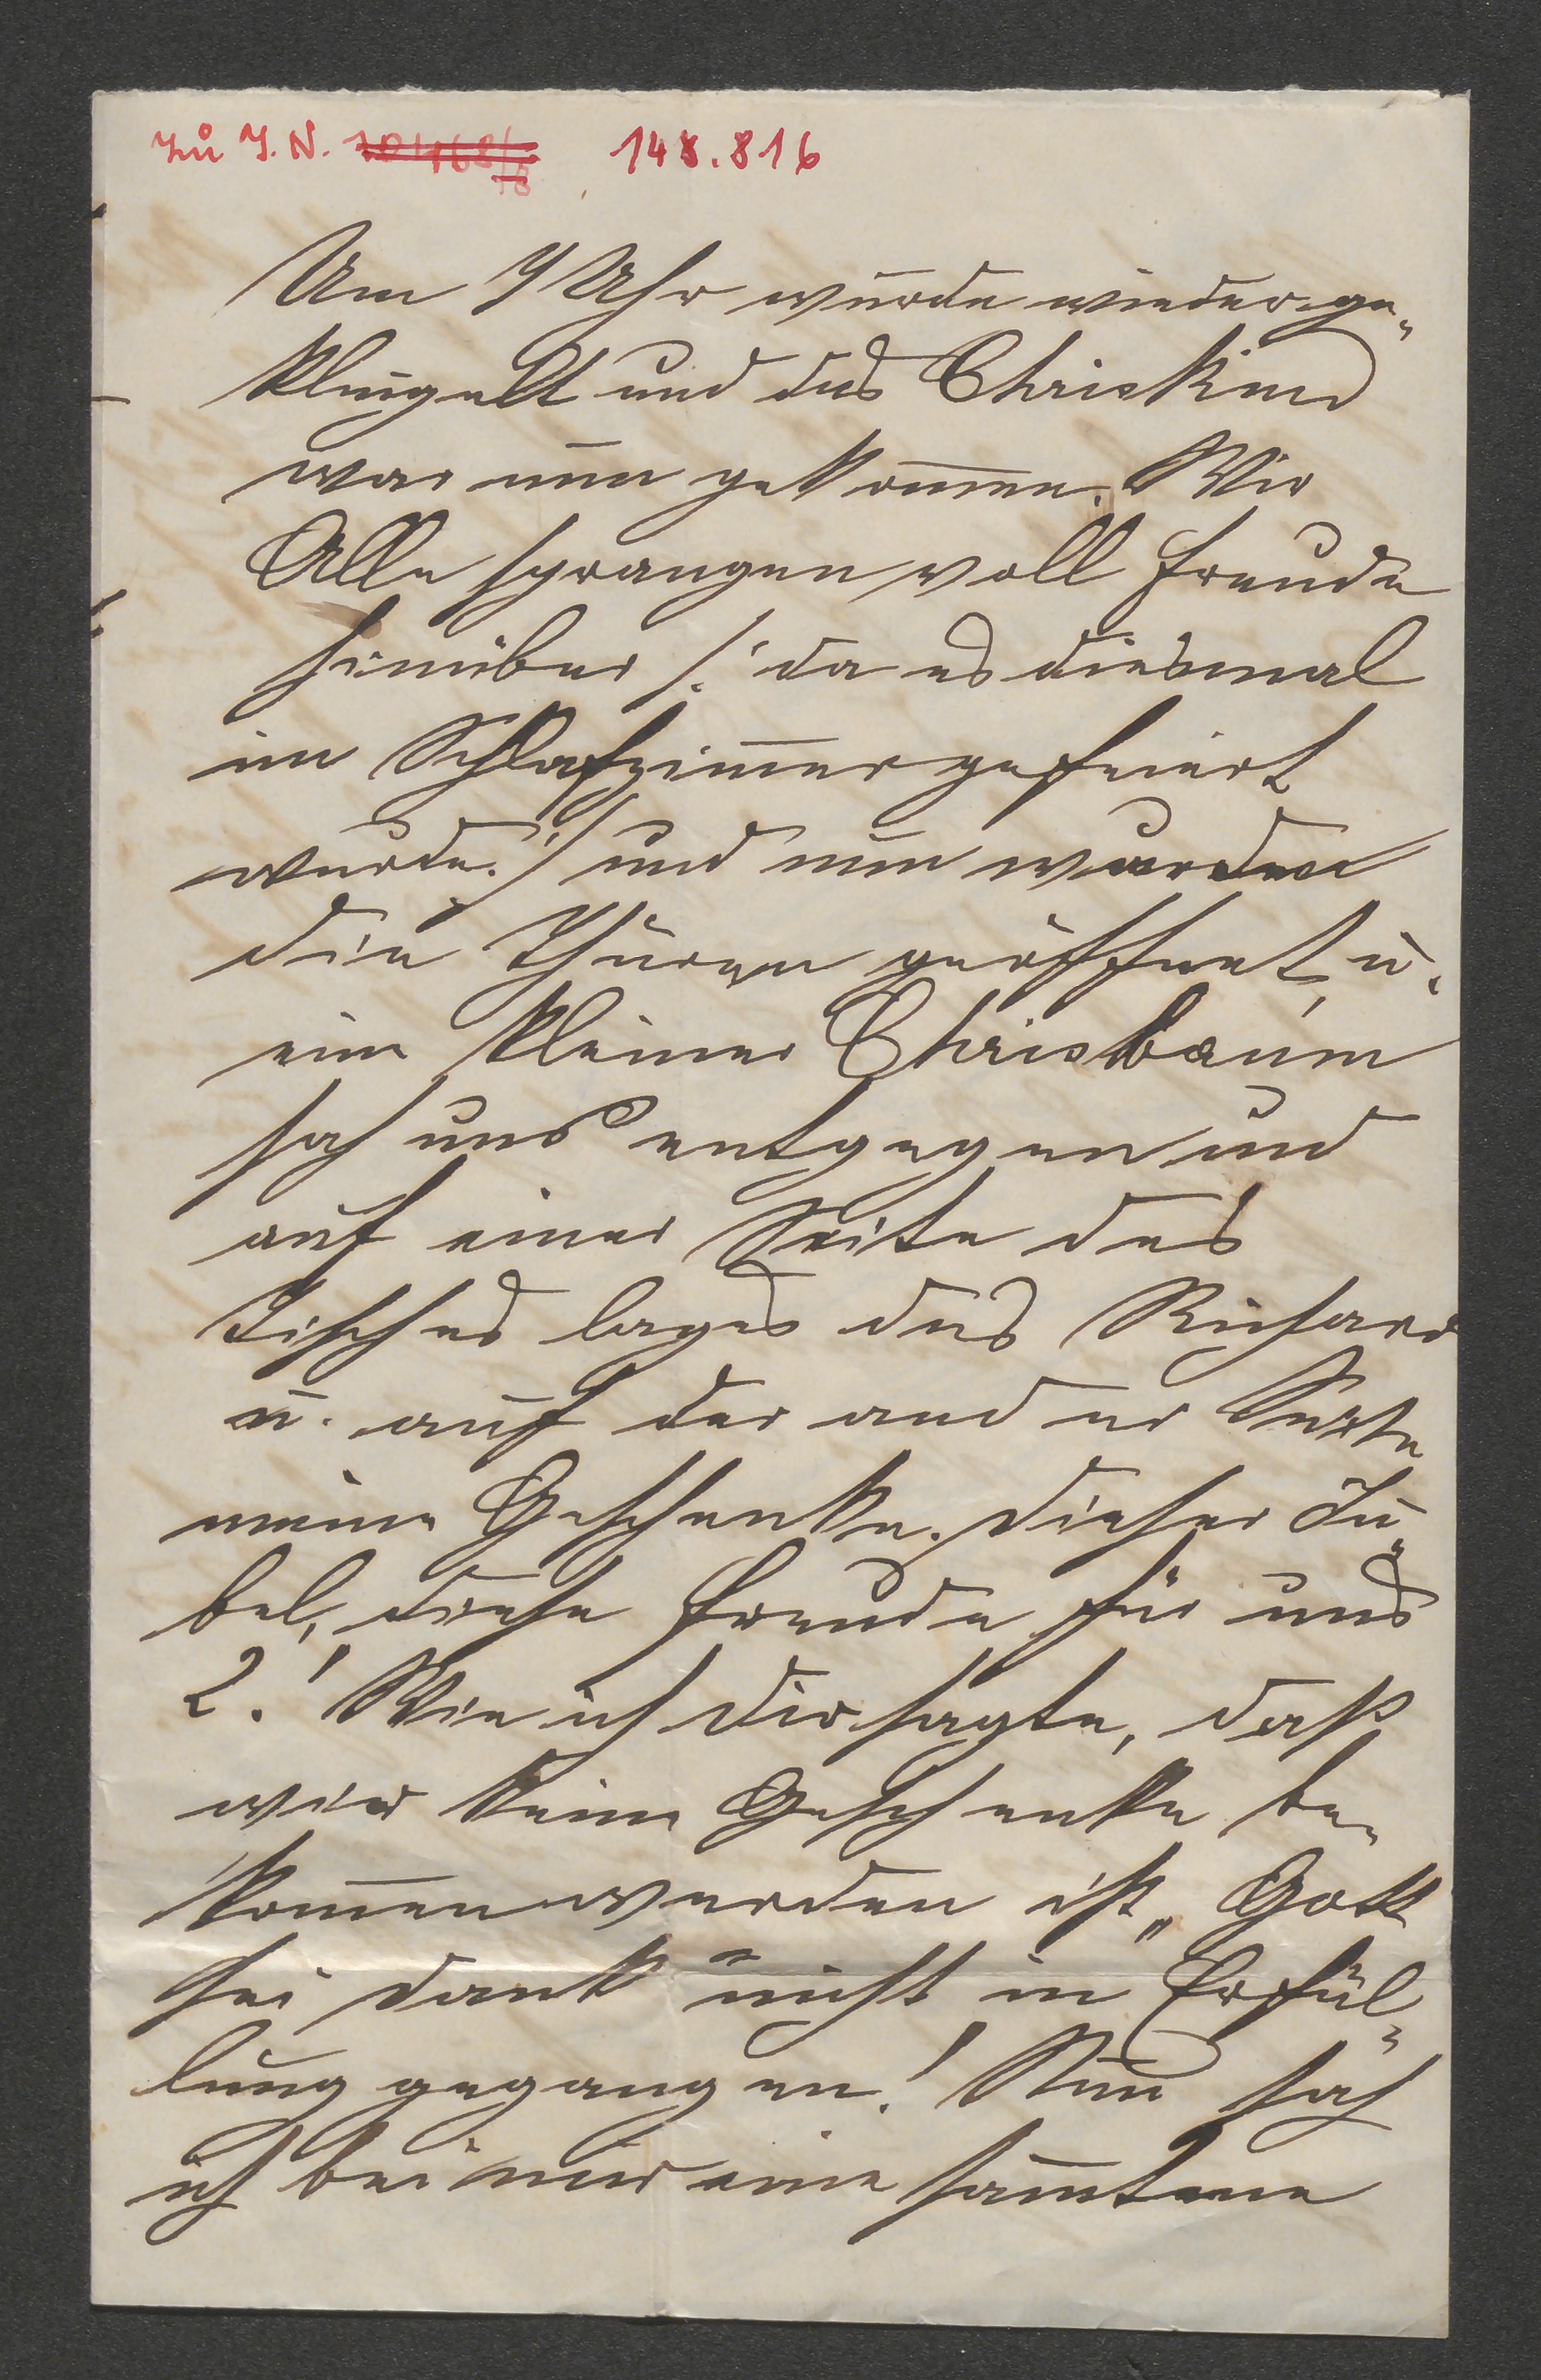 Zu I.N. 148.816
Um 7 Uhr wurde wieder ge„
klingelt und das Chriskind
war nun gekommen. Wir
Alle sprangen voll Freude
hinüber /: da es diesmal
im Schlafzimmer gefeiert
wurde :/ und nun wurden
die Thüren geöffnet, u.
ein kleiner Chrisbaum
sah uns entgegen und
auf einer Seite des
Tisches lagen des Richard
u. auf der ander Seite
meine Geschenke. Dieser Ju„
bel, diese Freude für uns
2.! Wie ich dir sagte, daß
wir keine Geschenke be„
kommen werden ist „Gott
sei dank" nicht in Erfül„
lung gegangen! Nun sah
ich bei mir eine samtene